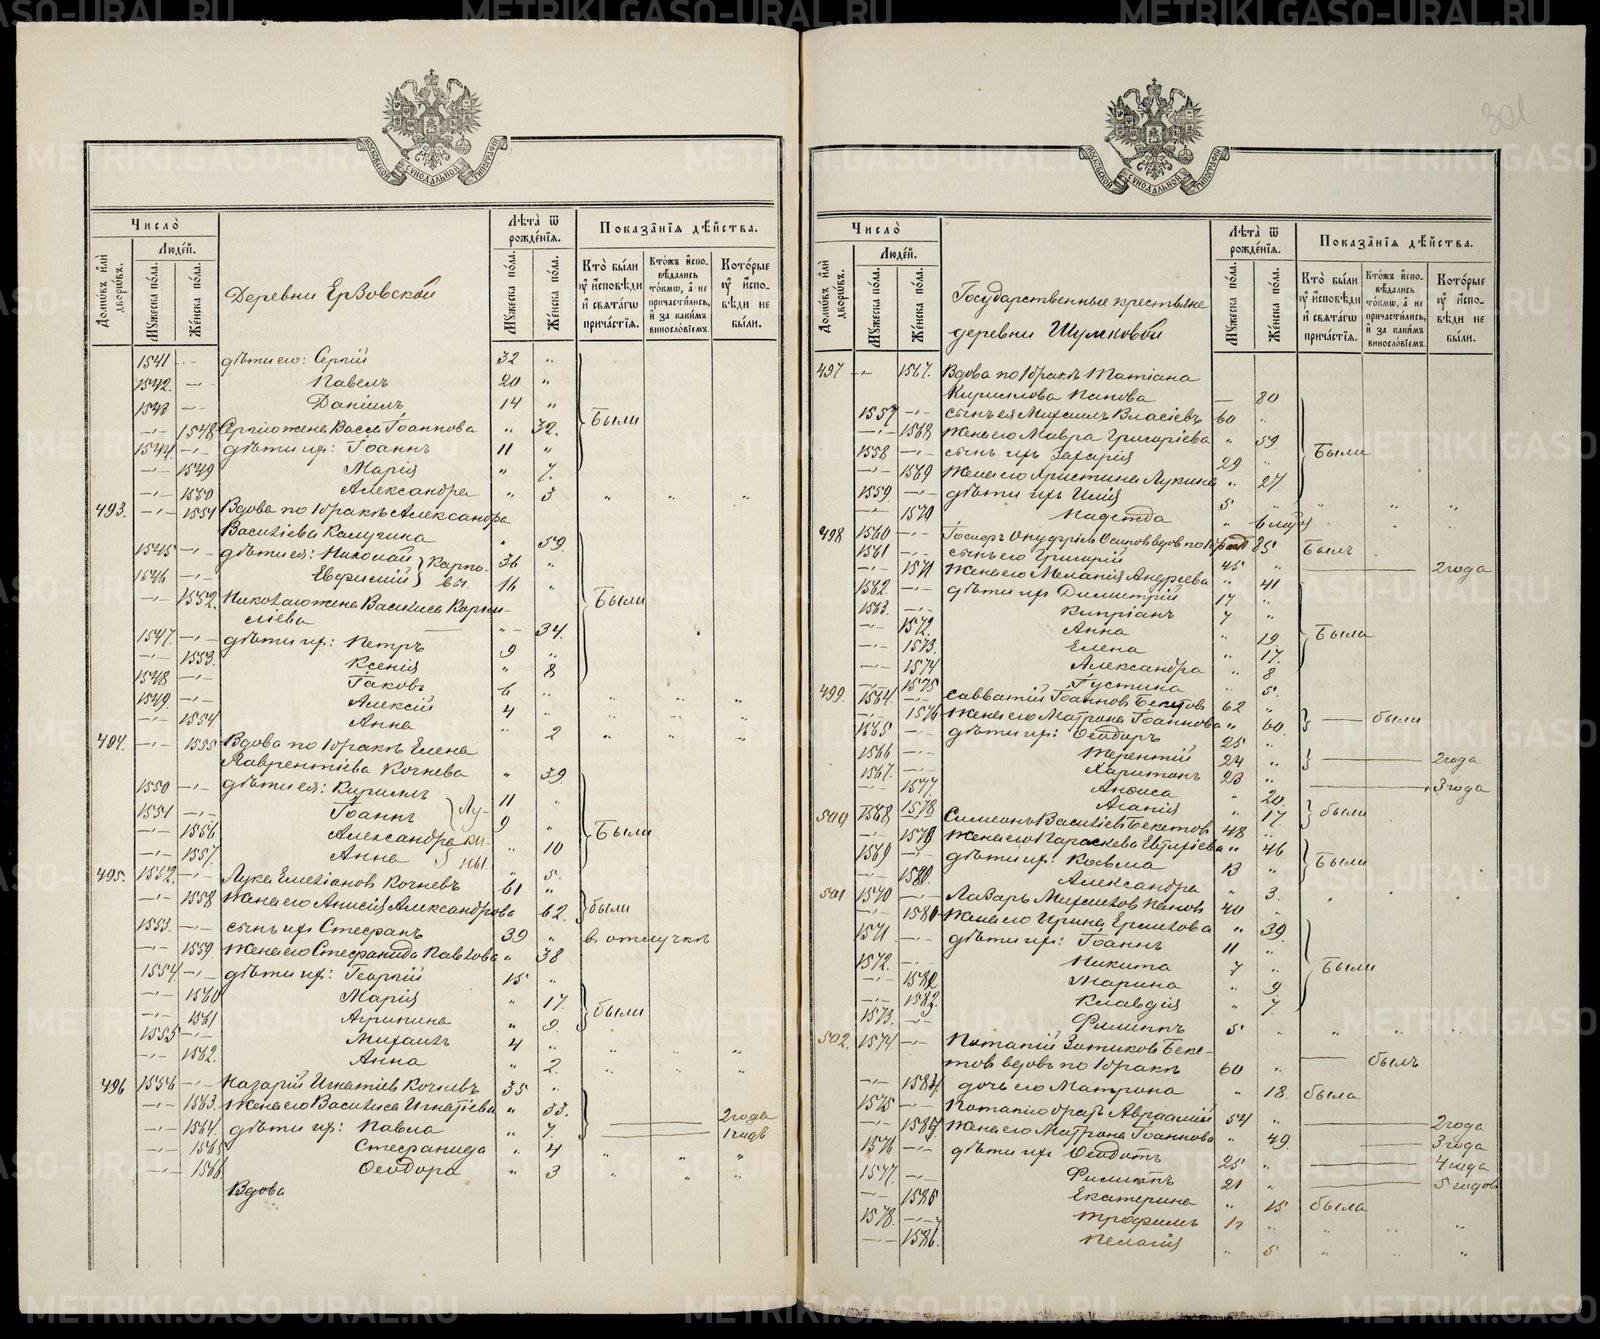 301
МОСКОВСКОЙ СѴНОДАЛЬНОЙ ТИПОГРАФІИ
Число̀
Людей.
Домѡвъ и҆лѝ дворѡвъ.
Мꙋжеска пола.
Женска пола.
Деревни Ерзовской
Лѣта̀ ѿ рожденїѧ.
Мꙋжеска пола.
Женска пола.
Показанїѧ дѣйства.
Кто̀ были ᲂу҆ исповѣди и҆ свѧтагѡ причастїѧ.
Ктожъ исповѣдались токмѡ, а҆ не причастились, и҆ за какимъ винословїемъ.
Которые ᲂу҆ исповѣди не были.
1541 дѣти его: Сергій 32 "
1542. Павелъ 20 "
1543 Даніилъ 14 " Были
1548 Сергію жена Васса Іоаннова " 32.
1544 дѣти их: Іоаннъ 11 "
1549 Марія " 7.
1550 Александра " 3 " " "
493. 1551 Вдова по 1 бракѣ Александра
Васильева Калугина " 59.
1545 дѣти ея: Николай Карпо- 36 "
1546 Евфимій вы 16 " Были
1552. Николаю жена Василиса Корни-
ліева " 34.
1547. дѣти их: Петръ 9 "
1553. Ксенія " 8
1548 Іаковъ 6 "
1549 Алексій 4 " " " "
1554 Анна " 2 " " "
494. 1555 Вдова по 1 бракѣ Елена
Лаврентіева Кочнева " 39.
1550 дѣти ея: Кириллъ 11 "
1551 Іоаннъ Лу- 9 "
1556 Александра ки- " 10 Были
1557. Анна ны. " 5.
495. 1552. Лука Емеліановъ Кочневъ 61 "
1558 Жена его Анисія Александрова 62. были
1553. сынъ их Стефанъ 39 " в отлучкѣ
1559. Жена его Стефанида Павлова " 38
1554 дѣти их: Георгій 15 "
1560 Марія " 17. были
1561 Агрипина " 9.
1555 Михаилъ 4 "
1562. Анна " 2. " " "
496 1556 Назарій Игнатіев Кочневъ 35 "
1563. Жена его Василиса Игнатіева " 33. 2 года
1564 дѣти их: Павла " 7. 1 годъ
1565 Стефанида " 4 " " "
1566 Ѳеодора " 3 " " "
Вдова
МОСКОВСКОЙ СѴНОДАЛЬНОЙ ТИПОГРАФІИ
Число̀
Людей.
Домѡвъ и҆лѝ дворѡвъ.
Мꙋжеска пола.
Женска пола.
Государственные крестьяне
деревни Шулковой
Лѣта̀ ѿ рожденїѧ.
Мꙋжеска пола.
Женска пола.
Показанїѧ дѣйства.
Кто̀ были ᲂу҆ исповѣди и҆ свѧтагѡ причастїѧ.
Ктожъ исповѣдались токмѡ, а҆ не причастились, и҆ за какимъ винословїемъ.
Которые ᲂу҆ исповѣди не были.
497 1567. Вдова по 1 бракѣ Татіана
Кириллова Панова — 80
1557 сынъ ея Михаилъ Власіевъ 60 "
1568 Жена его Мавра Григоріева " 59.
1558 сынъ ихъ Захарія 29 " Были
1569 Жена его Христина Лукина " 27
1559. дѣти ихъ Илія 5 " " " "
1570 Надежда "
498 1560 Іосифъ Онуфріев вдов по 85 Былъ
1561 сынъ его Григорій 45 " 2 года
1571 Жена его Меланія Андреева " 41
1562. дѣти их Димитрій 17 "
1563. Кипріанъ 7 "
1572. Анна " 19 Были
1573. Елена " 17.
1574 Александра " 8
1575 Іустина " 5.
499. 1564. Савватій Іоаннов Бекетов 62 "
1576 Жена его Матрона Іоаннова " 60. были
1565 дѣти их: Ѳеодоръ 25 "
1566 Терентій 24 " 2 года
1567. Харитонъ 23 "
1577. Анфиса " 20. 3 года
1578 Агапія " 17. были
500 1568 Симеонъ Васильев Бекетов 48 "
1579 Жена его Параскева " 46
1569 дѣти их: Косьма 13 " Были
1580. Александра " 3.
501 1570 Лазарь Михаилов Панов 40 "
1581 Жена его Ирина Ермилова " 39.
1571 дѣти их: Іоаннъ 11 "
1572. Никита 7 " Были
1582 Марина " 9
1583. Клавдія " 7.
1573. Филиппъ 5 " " " "
502. 1574 Потапій Зотиков Беке-
тов вдов по 1 бракѣ 60 " былъ
1584 дочь его Матрона " 18. была
1575 Потапію братъ Авраамій 54 " 2 года
1585 Жена его Матрона Іоаннова " 49. 3 года
1576 дѣти их Ѳеодотъ 25 " 4 года
1577. Филиппъ 21 " 5 годов
1585 Екатерина " 15 была
1578. Трофимъ " " "
1586. Пелагія " 5 " " "